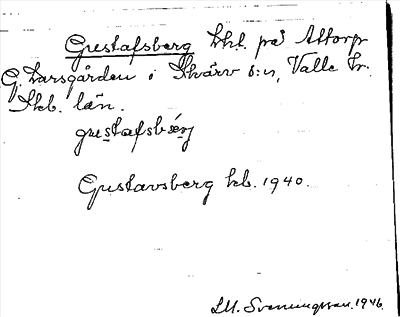 Gustafsberg lht. på Attorp
G. Larsgården i Skärv s:n, Valle hr.
Skb. län.
gustafsbérj
Gustavsberg kb. 1940.
L.M. Svenungsson. 1946.